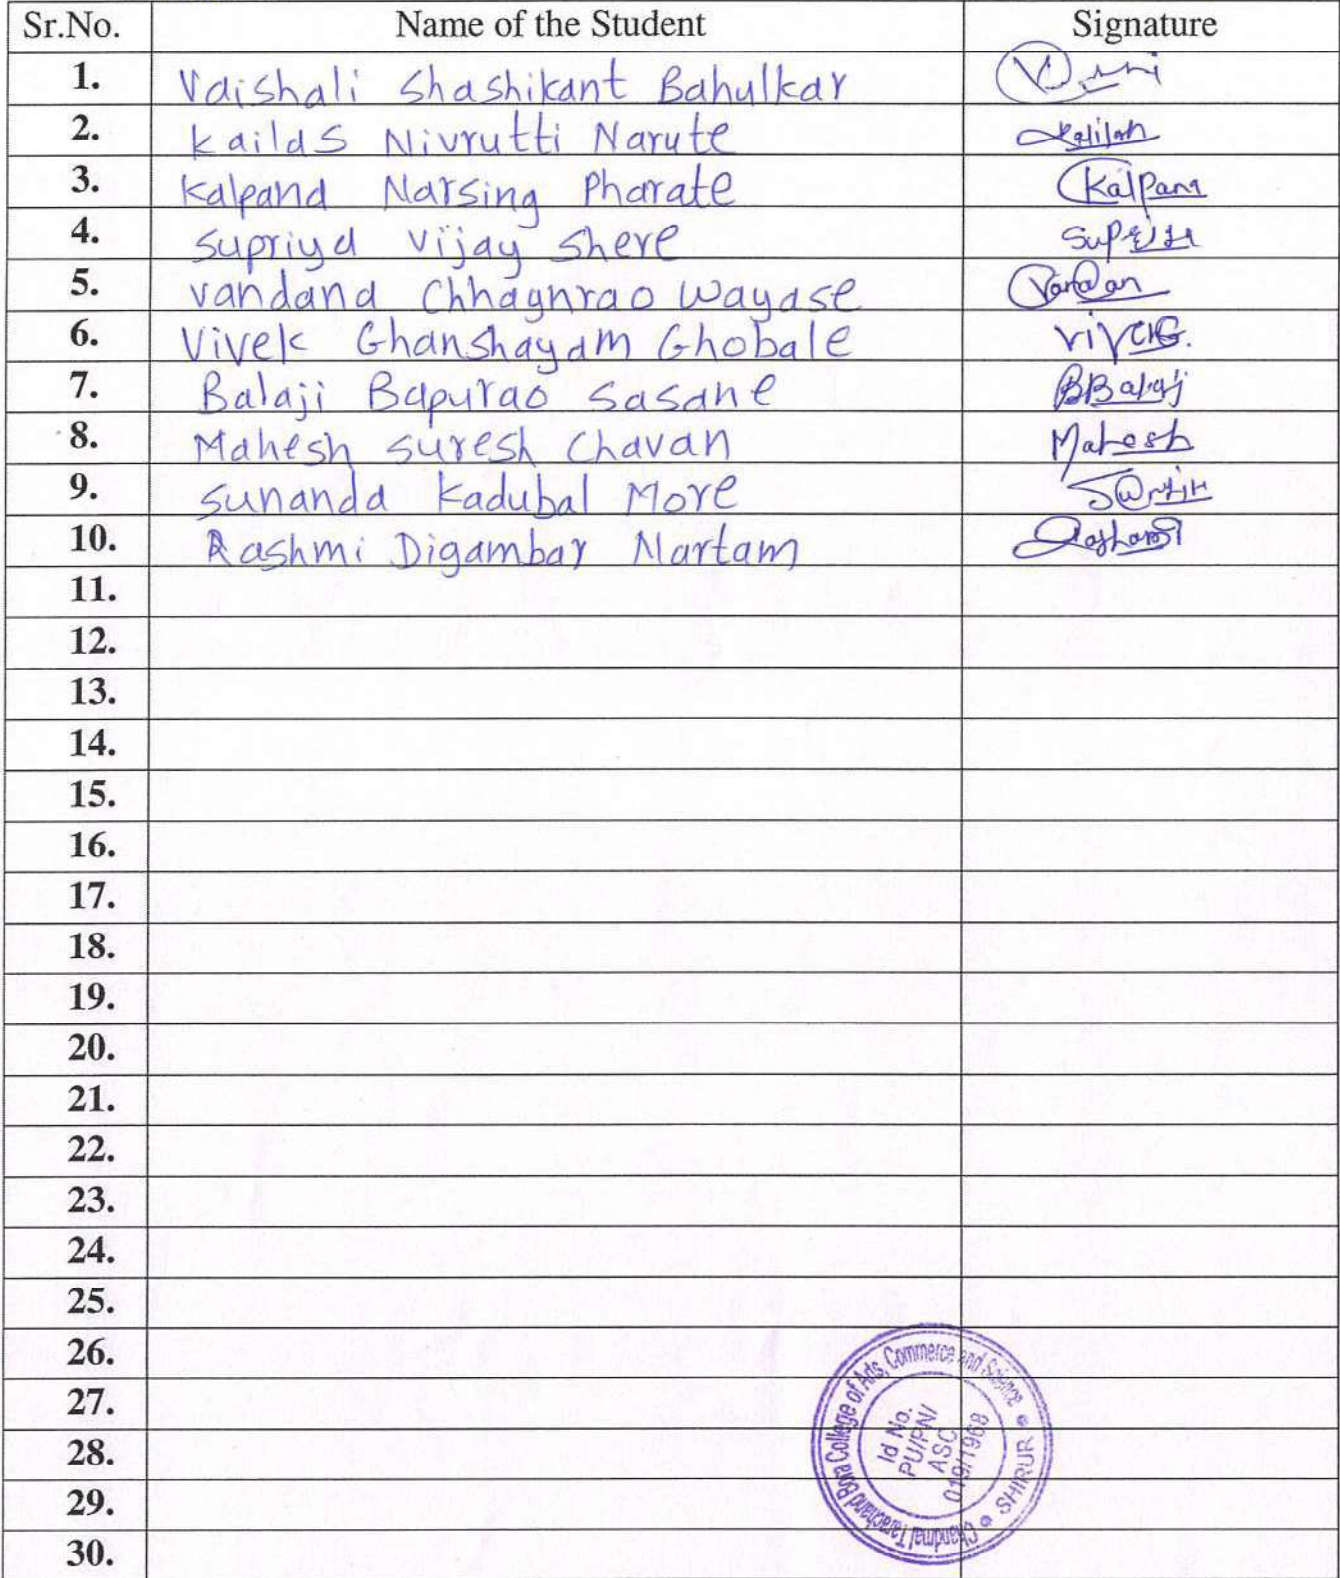 Sr.No. Name of the Student Signature
1. Vaishali Shashikant Bahulkar
2. Kailas Nivrutti Narute
3. Kalpana Narsing Pharate Kalpana
4. Supriya Vijay Shere
5. Vandana Chhagnrao Wayase
6. Vivek Ghanshayam Ghobale
7. Balaji Bapurao Sasane
8. Mahesh Suresh Chavan Mahesh
9. Sunanda Kadubal More
10. Rashmi Digambar Martam
11.
12.
13.
14.
15.
16.
17.
18.
19.
20.
21.
22.
23.
24.
25.
26.
27.
28.
29.
30.
Chandmal Tarachand Bora College of Arts, Commerce and Science
SHIRUR
Id No.
PU/PN/
ASC
019/1968